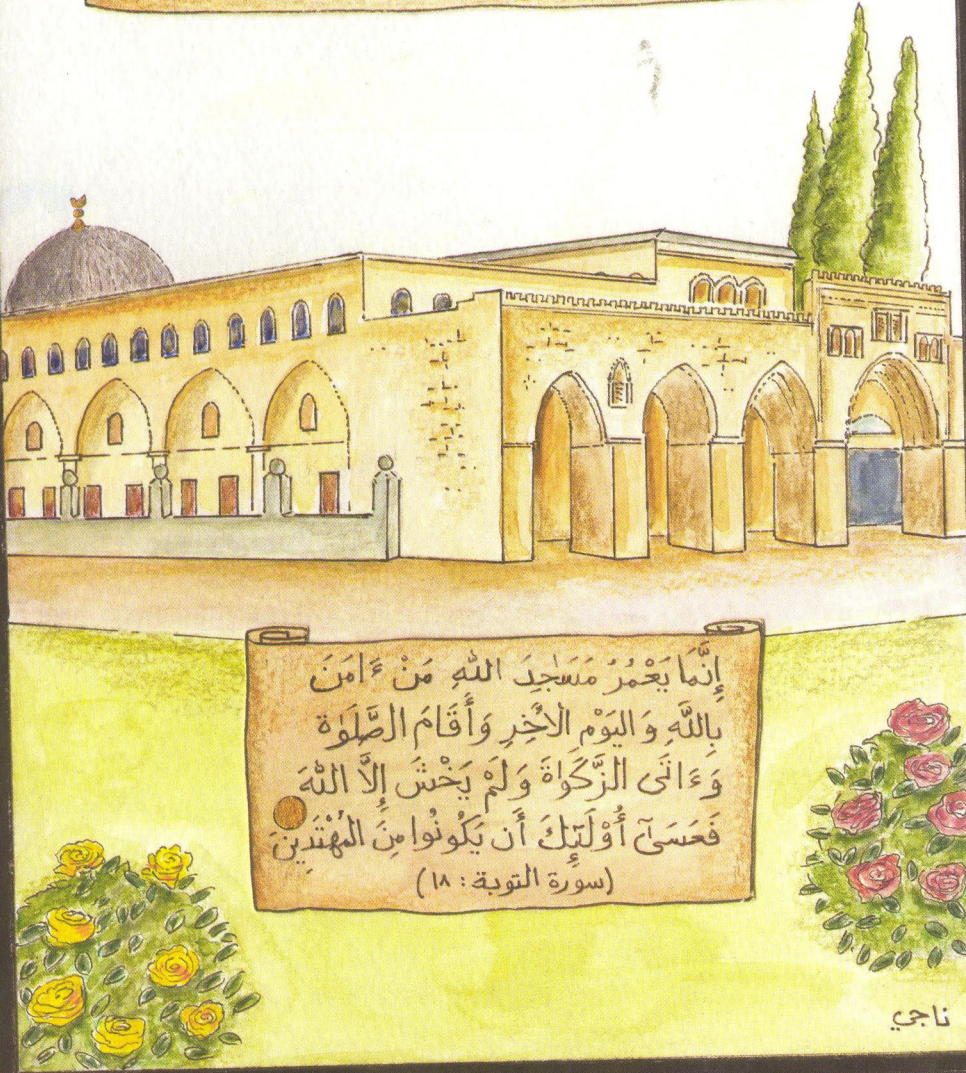 إِنَّمَا يَعْمُرُ مَسَٰجِدَ اللهِ مَنْ ءَامَنَ
بِاللَّهِ وَاليَوْمِ الْأَخِرِ وَأَقَامَ الصَّلَوٰةَ
وَءَاتَى الزَّكَوٰةَ وَلَمْ يَخْشَ إِلَّا اللهَ
فَعَسَىٓ أُوْلَٰٓئِكَ أَن يَكُونُوا مِنَ المُهْتَدِينَ
(سورة التوبة: ١٨)
ناجي